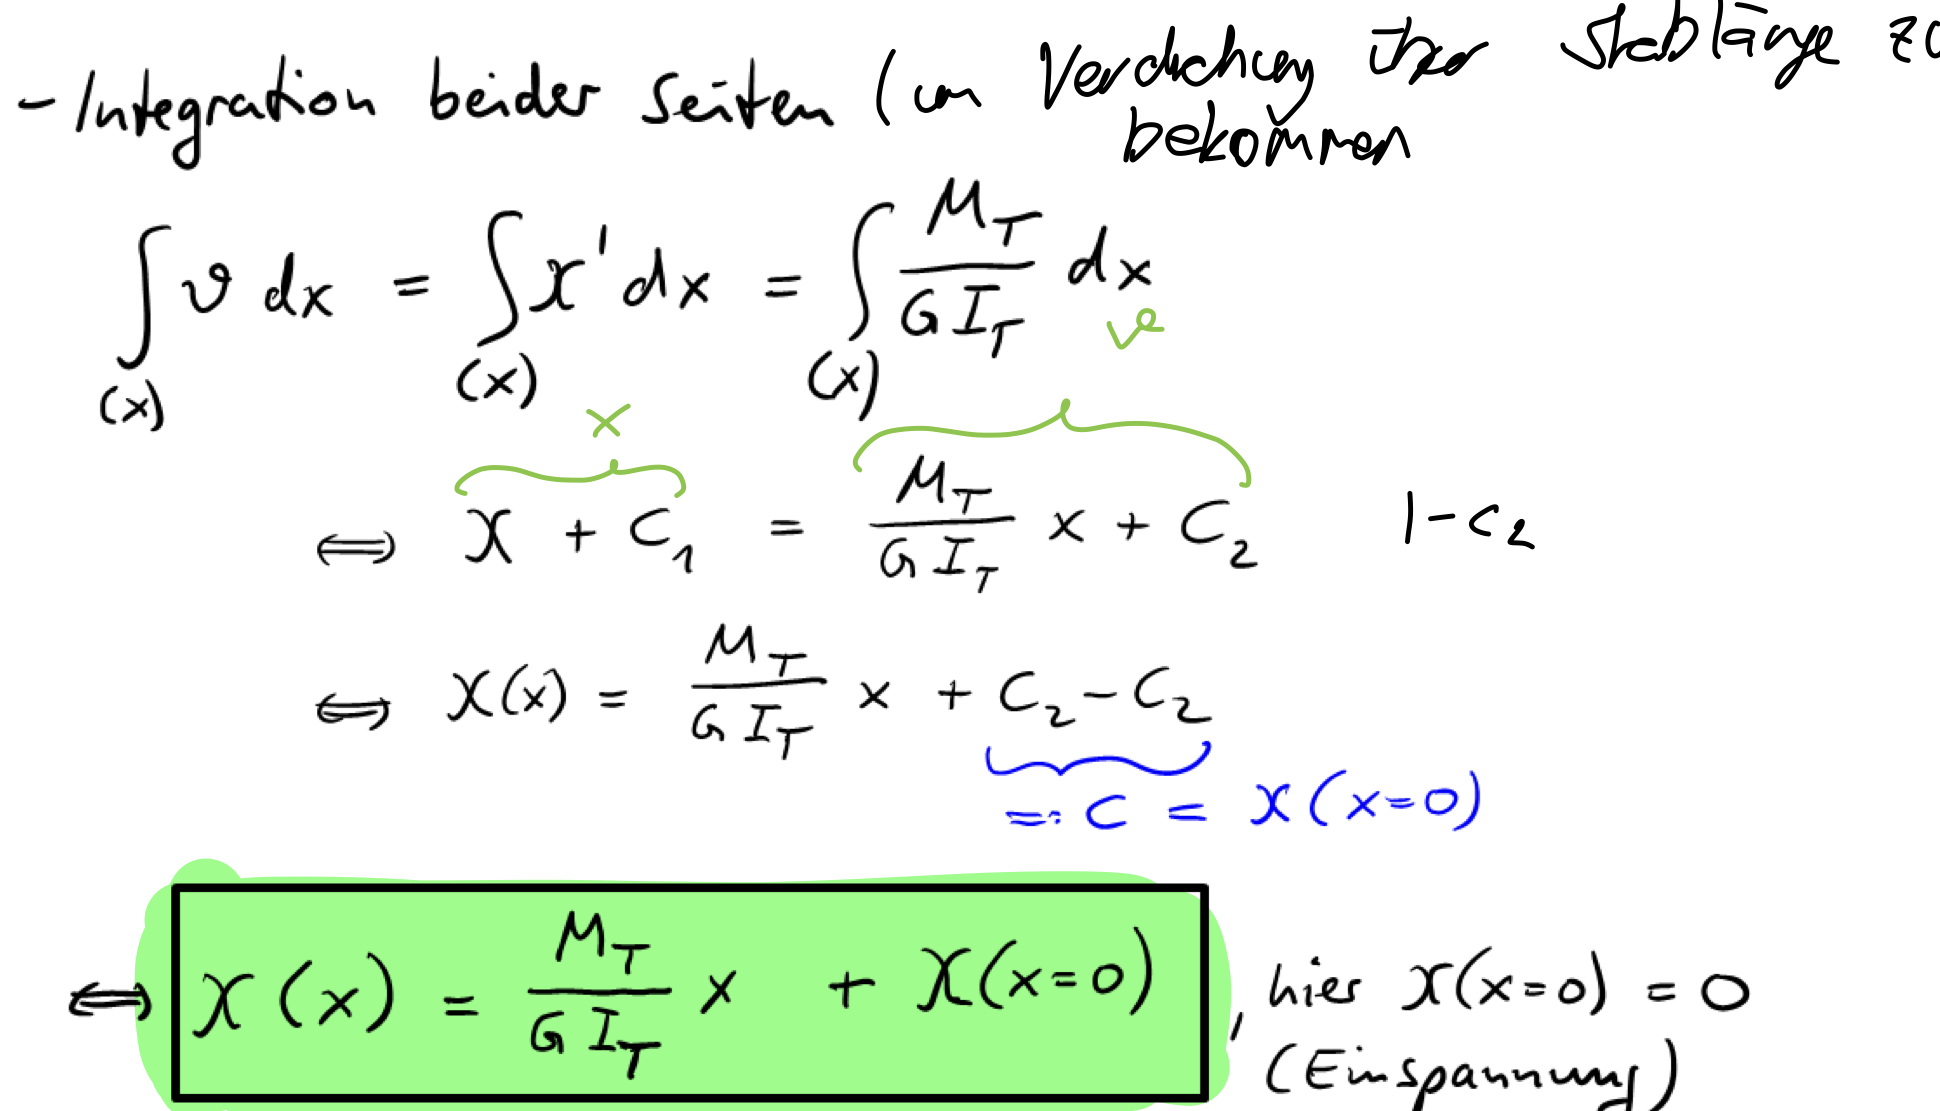 - Integration beider Seiten (um Verdrehung über Stablänge zu
bekommen
∫(x) ϑ dx = ∫(x) χ' dx = ∫(x) M_T / (G I_T) dx
χ ϑ
⟺ χ + C_1 = M_T / (G I_T) x + C_2 | - C_2
⟺ χ(x) = M_T / (G I_T) x + C_2 - C_2
=: C = χ(x=0)
⟺ χ(x) = M_T / (G I_T) x + χ(x=0) , hier χ(x=0) = 0
(Einspannung)